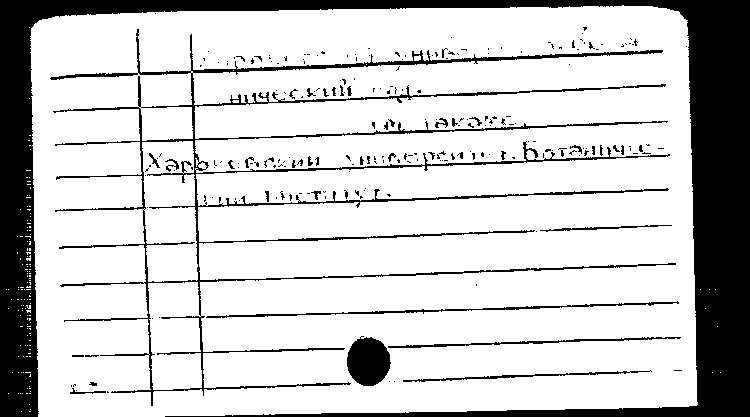 университет. Бота-
нический сад.
см. также.
Харьковский университет. Ботаничес-
кий институт.